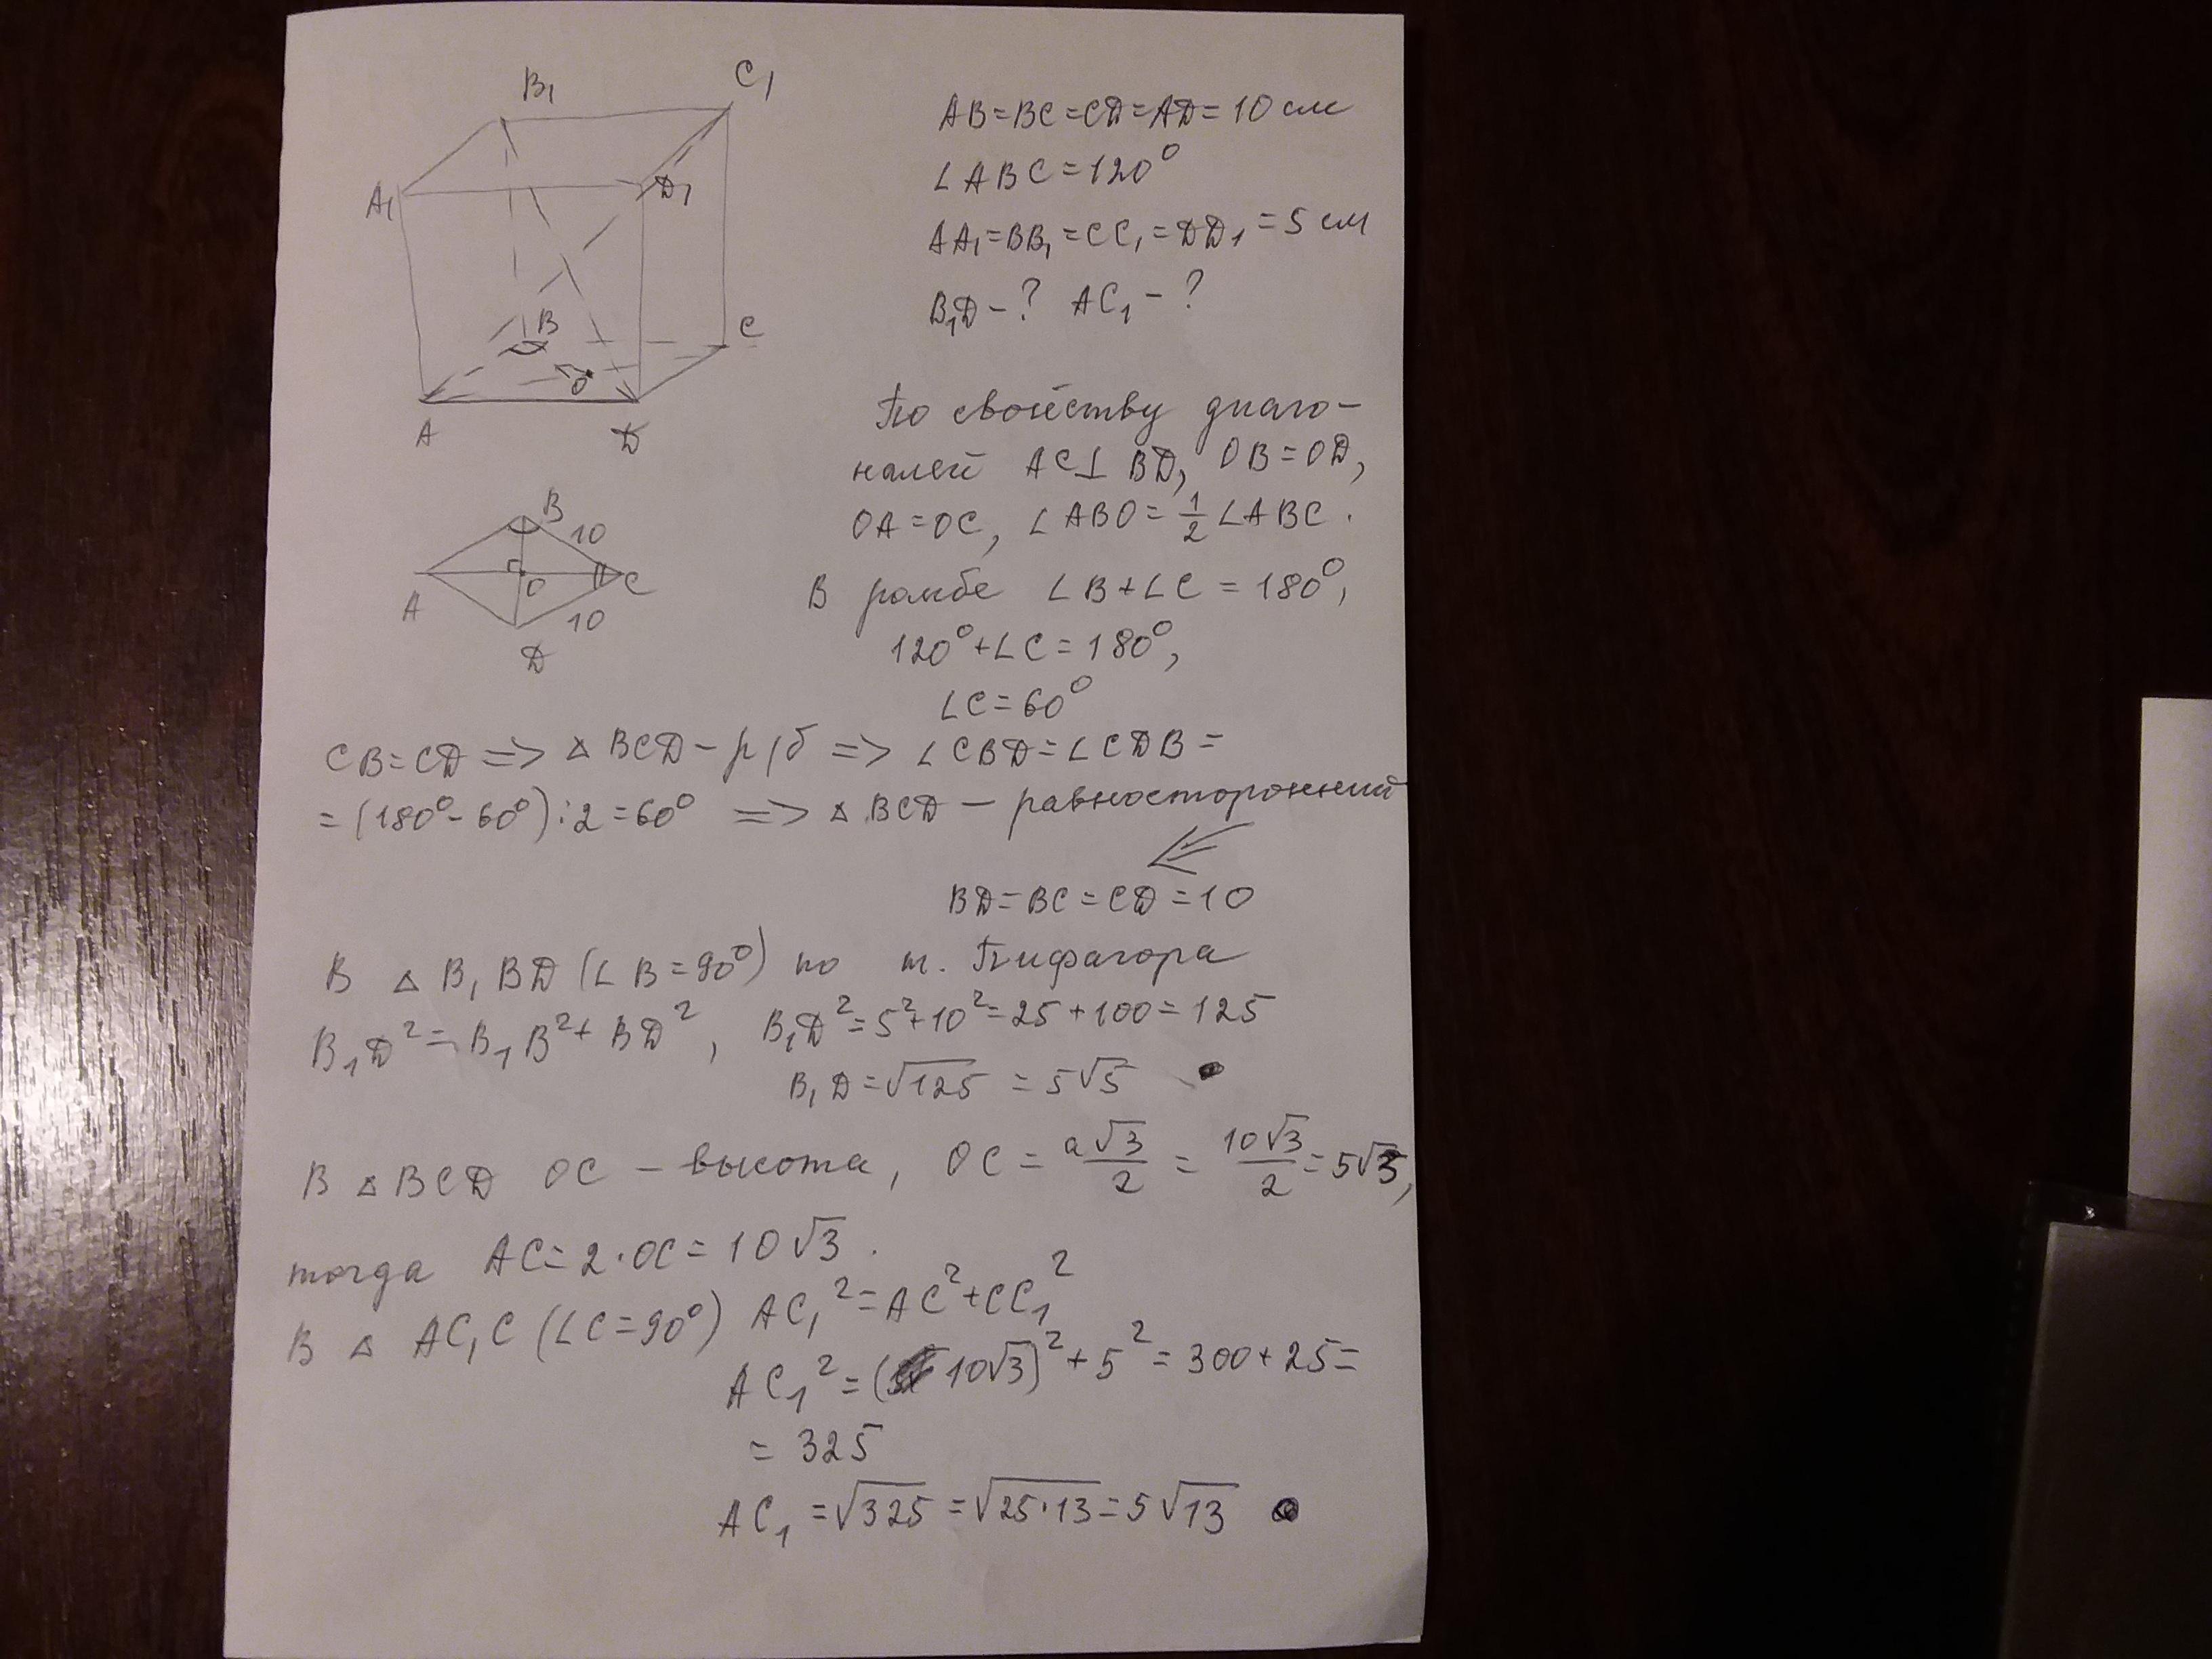 B₁
C₁
A₁
D₁
B
C
O
A
D
AB=BC=CD=AD=10 см
∠ABC=120⁰
AA₁=BB₁=CC₁=DD₁=5 см
B₁D-? AC₁-?
По свойству диаго-
налей AC⊥BD, OB=OD,
OA=OC, ∠ABO=1/2∠ABC.
B
10
O
C
A
10
D
В ромбе ∠B+∠C=180⁰,
120⁰+∠C=180⁰,
∠C=60⁰
CB=CD => △BCD-р/б => ∠CBD=∠CDB=
=(180⁰-60⁰):2=60⁰ => △BCD - равносторонний
BD=BC=CD=10
В △B₁BD (∠B=90⁰) по т. Пифагора
B₁D²=B₁B²+BD², B₁D²=5²+10²=25+100=125
B₁D=√125=5√5
В △BCD OC - высота, OC=a√3/2=10√3/2=5√3,
тогда AC=2·OC=10√3.
В △AC₁C (∠C=90⁰) AC₁²=AC²+CC₁²
AC₁²=(10√3)²+5²=300+25=
=325
AC₁=√325=√25·13=5√13